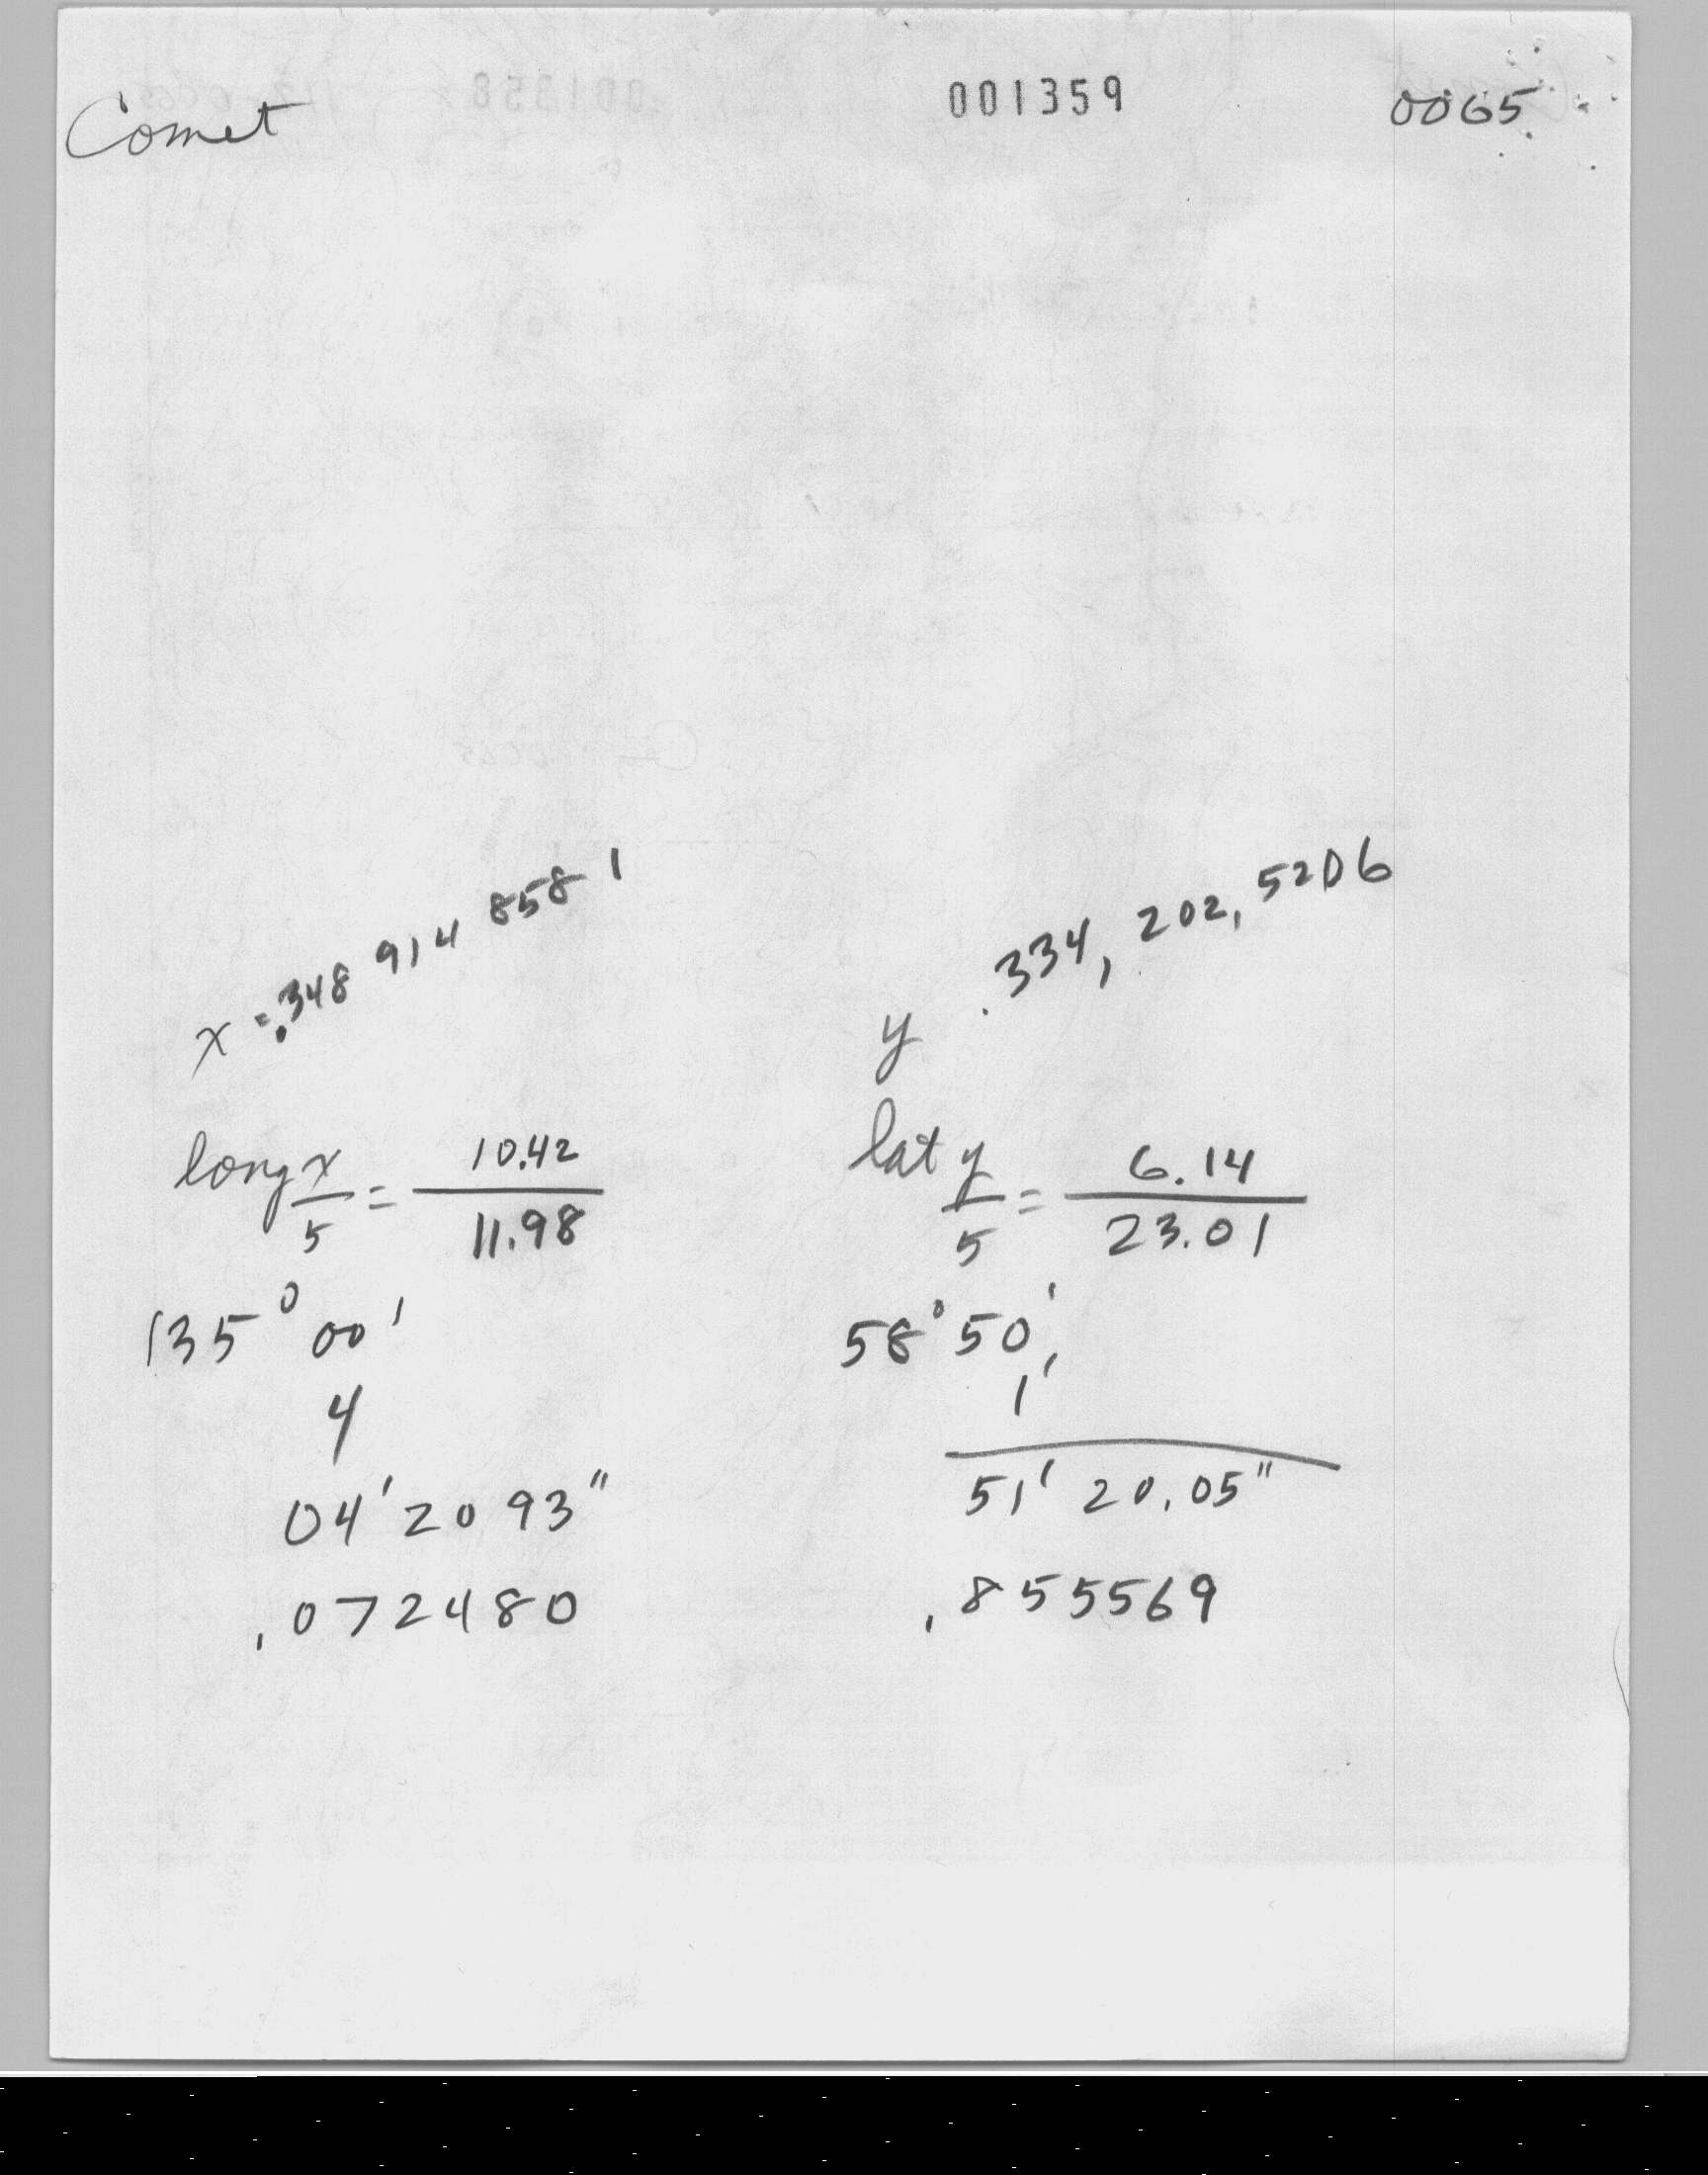 Comet 001359 0065
x = .348 914 858 1
y .334, 202, 5206
long x/5 = 10.42/11.98
lat y/5 = 6.14/23.01
135° 00'
58° 50'
4
1'
04' 20 93"
51' 20.05"
.072480
.855569